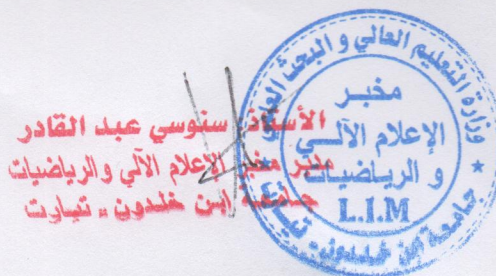 وزارة التعليم العالي و البحث العلمي
مخبر
الإعلام الآلـي
و الريـاضيـات
L.I.M
جامعة ابن خلدون - تيارت
الأستاذ سنوسي عبد القادر
مدير مخبر الإعلام الآلي والرياضيات
جامعة ابن خلدون - تيارت